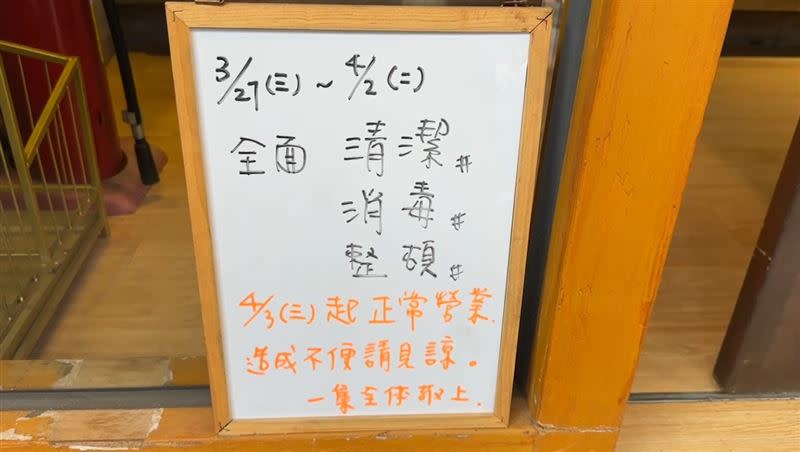 3/27(三)~4/2(二)
全面 清潔#
消毒#
整頓#
4/3(三)起 正常營業.
造成不便請見諒。
一集全体敬上.